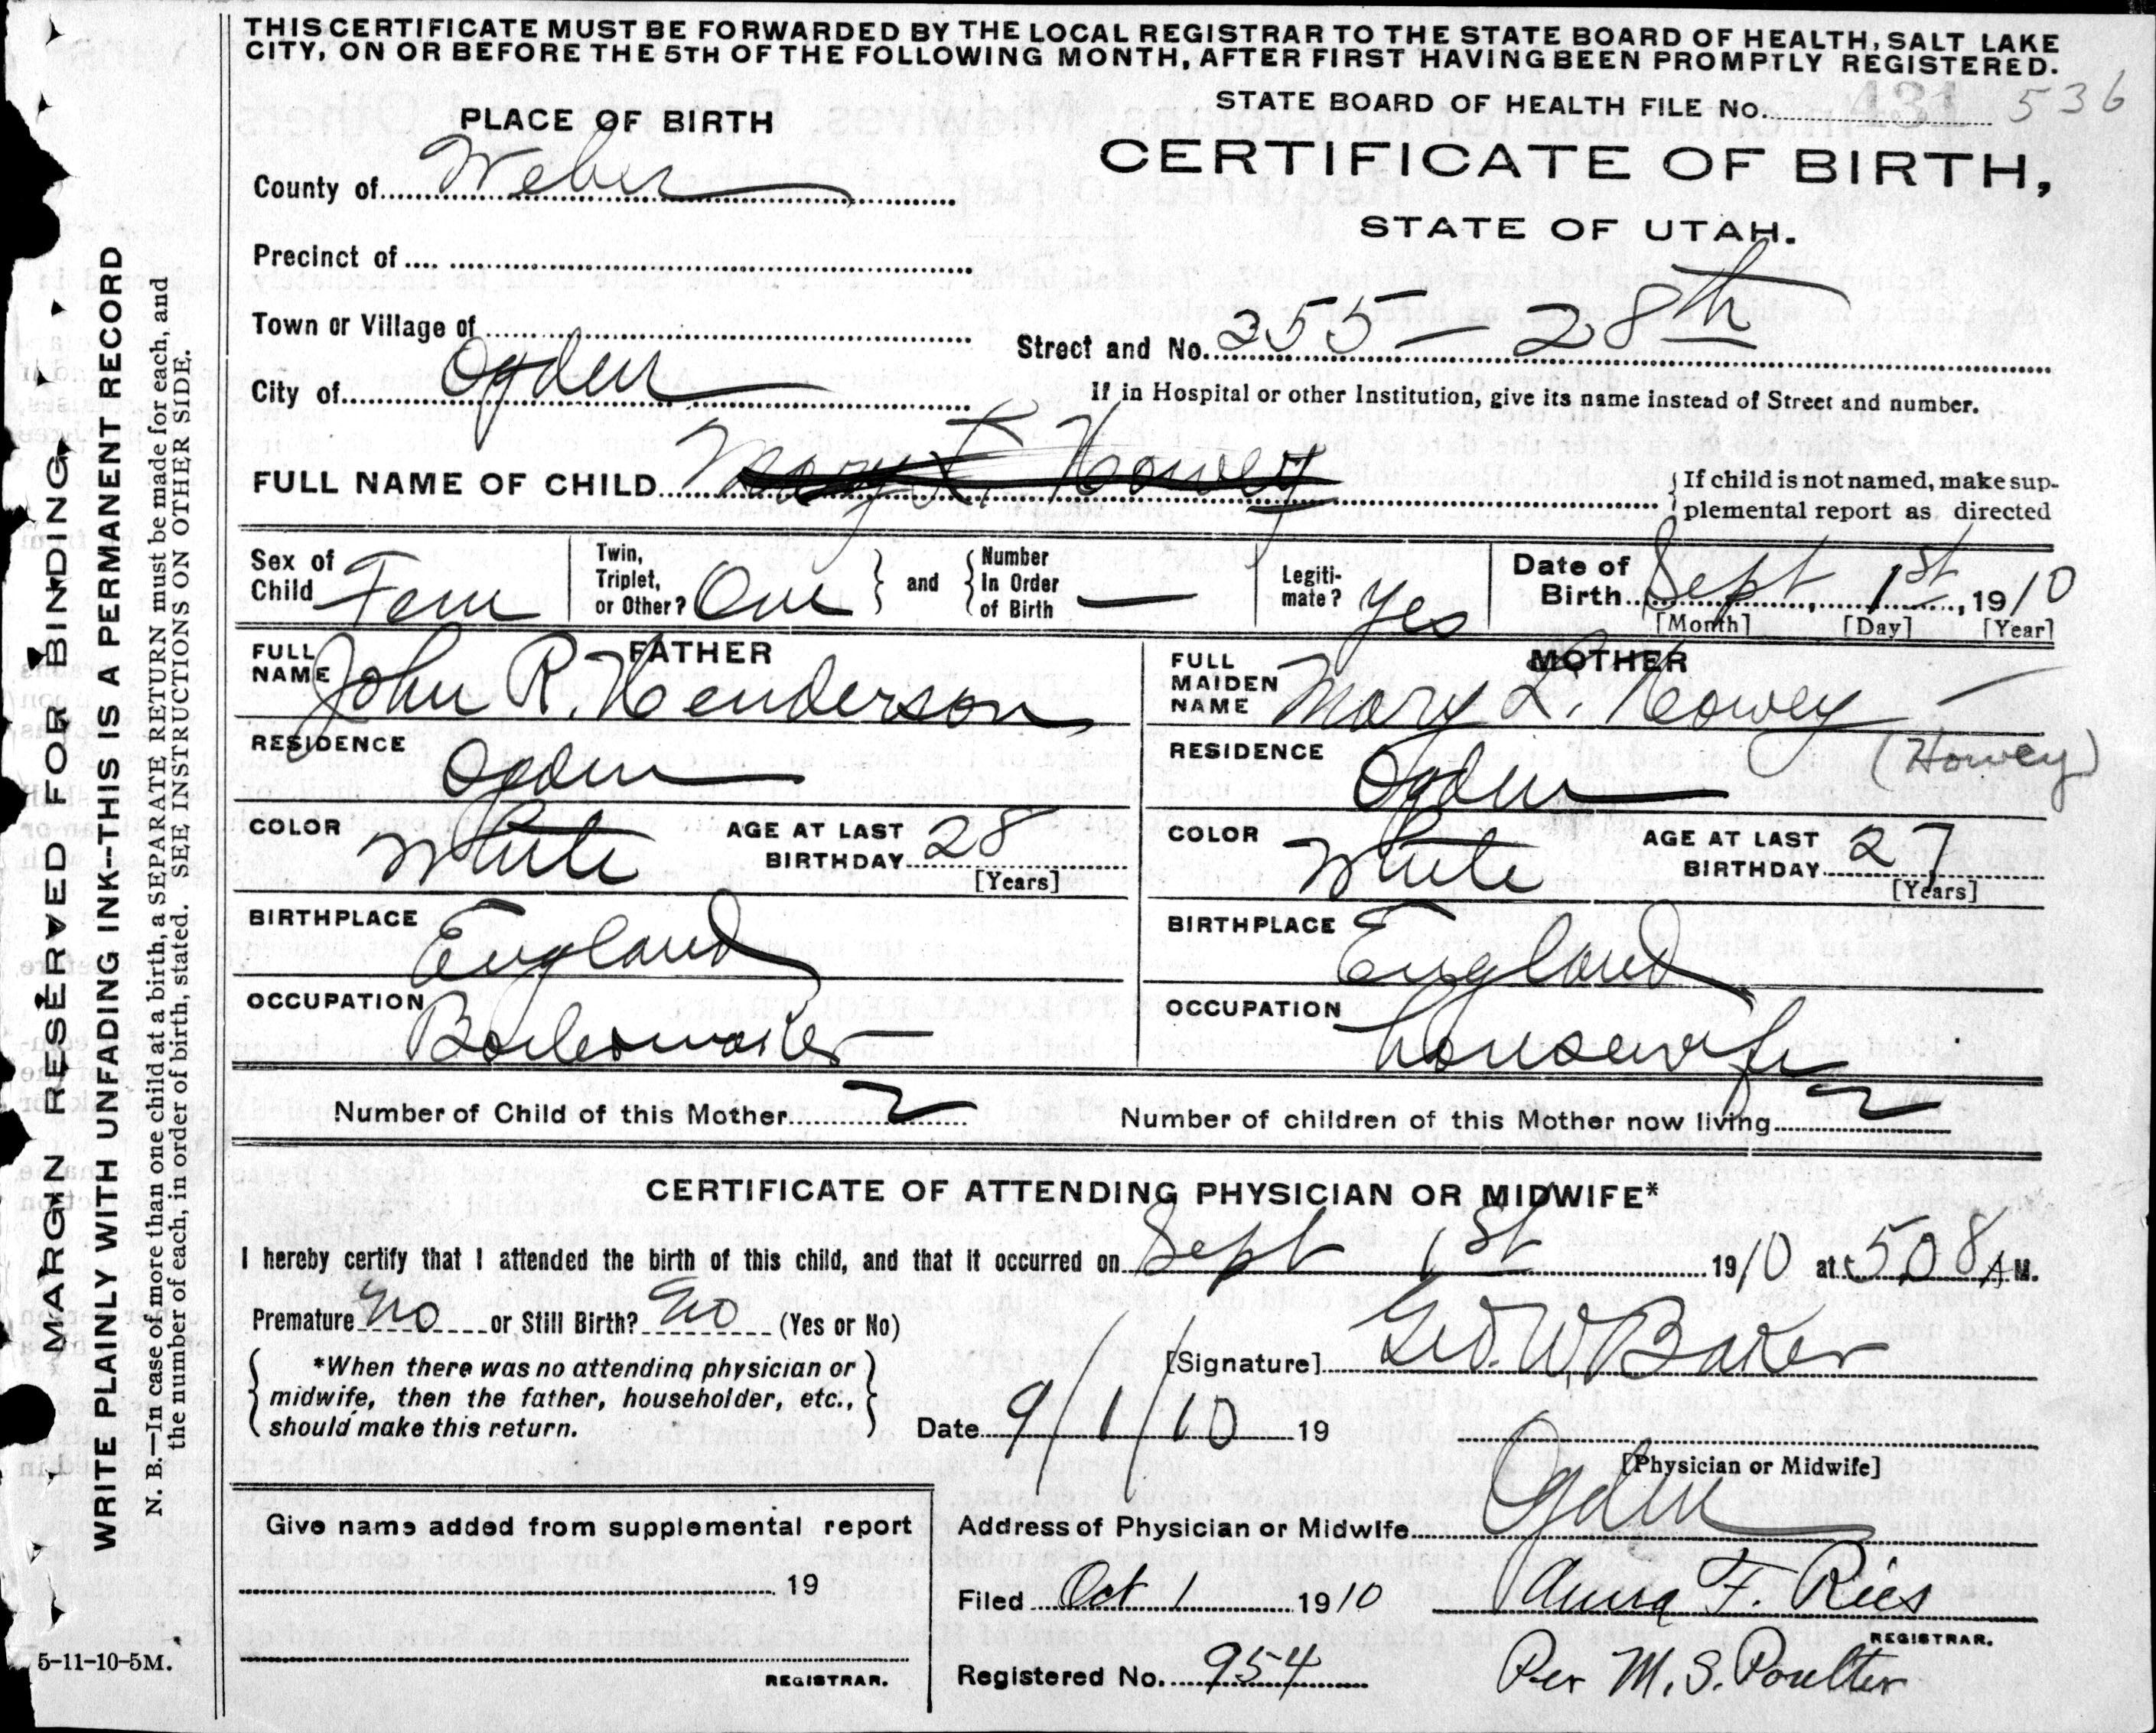 THIS CERTIFICATE MUST BE FORWARDED BY THE LOCAL REGISTRAR TO THE STATE BOARD OF HEALTH, SALT LAKE
CITY, ON OR BEFORE THE 5TH OF THE FOLLOWING MONTH, AFTER FIRST HAVING BEEN PROMPTLY REGISTERED.
STATE BOARD OF HEALTH FILE No. 431 536
PLACE OF BIRTH
CERTIFICATE OF BIRTH,
STATE OF UTAH.
County of Weber
Precinct of
Town or Village of
Street and No. 355 – 28th
City of Ogden
If in Hospital or other Institution, give its name instead of Street and number.
FULL NAME OF CHILD Mary L. Howey
{If child is not named, make sup-
plemental report as directed
Sex of Child Fem
Twin, Triplet, or Other? One } and { Number In Order of Birth —
Legiti-mate? Yes
Date of Birth Sept 1st, 1910
[Month] [Day] [Year]
FATHER
FULL NAME John R. Henderson
RESIDENCE Ogden
COLOR White AGE AT LAST BIRTHDAY 28
[Years]
BIRTHPLACE England
OCCUPATION Boilermaker
MOTHER
FULL MAIDEN NAME Mary L. Howey –
(Howey)
RESIDENCE Ogden
COLOR White AGE AT LAST BIRTHDAY 27
[Years]
BIRTHPLACE England
OCCUPATION housewife
Number of Child of this Mother 2 Number of children of this Mother now living 2
CERTIFICATE OF ATTENDING PHYSICIAN OR MIDWIFE*
I hereby certify that I attended the birth of this child, and that it occurred on Sept 1st 1910 at 5.08 A M.
Premature no or Still Birth? no (Yes or No)
*When there was no attending physician or
midwife, then the father, householder, etc.,
should make this return.
[Signature] Geo. W Baker
Date 9/1/10 19
[Physician or Midwife]
Address of Physician or Midwife Ogden
Give name added from supplemental report
19
REGISTRAR.
Filed Oct 1 1910 Anna F. Ries
REGISTRAR.
Registered No. 954 Per M. S. Poulter
MARGIN RESERVED FOR BINDING
WRITE PLAINLY WITH UNFADING INK--THIS IS A PERMANENT RECORD
N. B.—In case of more than one child at a birth, a SEPARATE RETURN must be made for each, and
the number of each, in order of birth, stated. SEE INSTRUCTIONS ON OTHER SIDE.
5-11-10-5M.